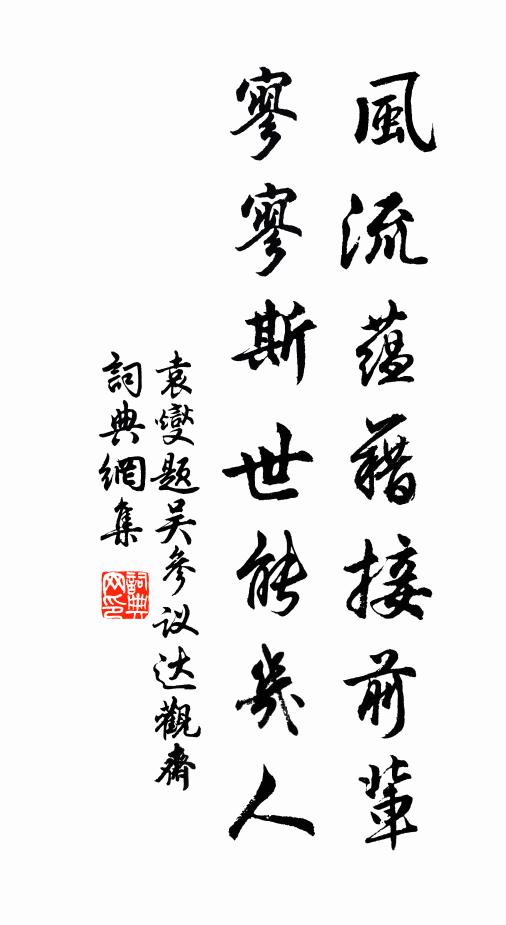 風流蕴藉接前輩
寥寥斯世能幾人
袁燮题吴參议达觀齋
詞典網集
詞典网印